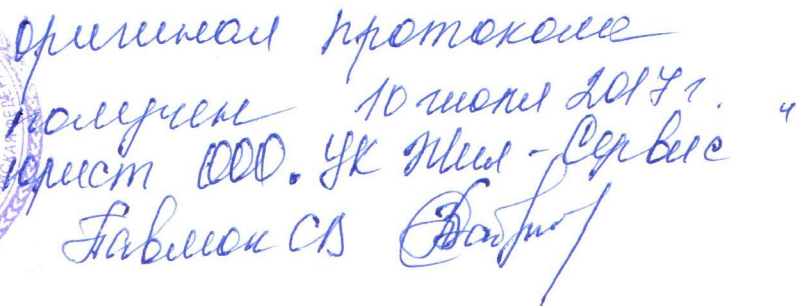 оригинал протокола
получен 10 июля 2017 г. "
юрист ООО. УК Жил-Сервис
Павлюк СВ